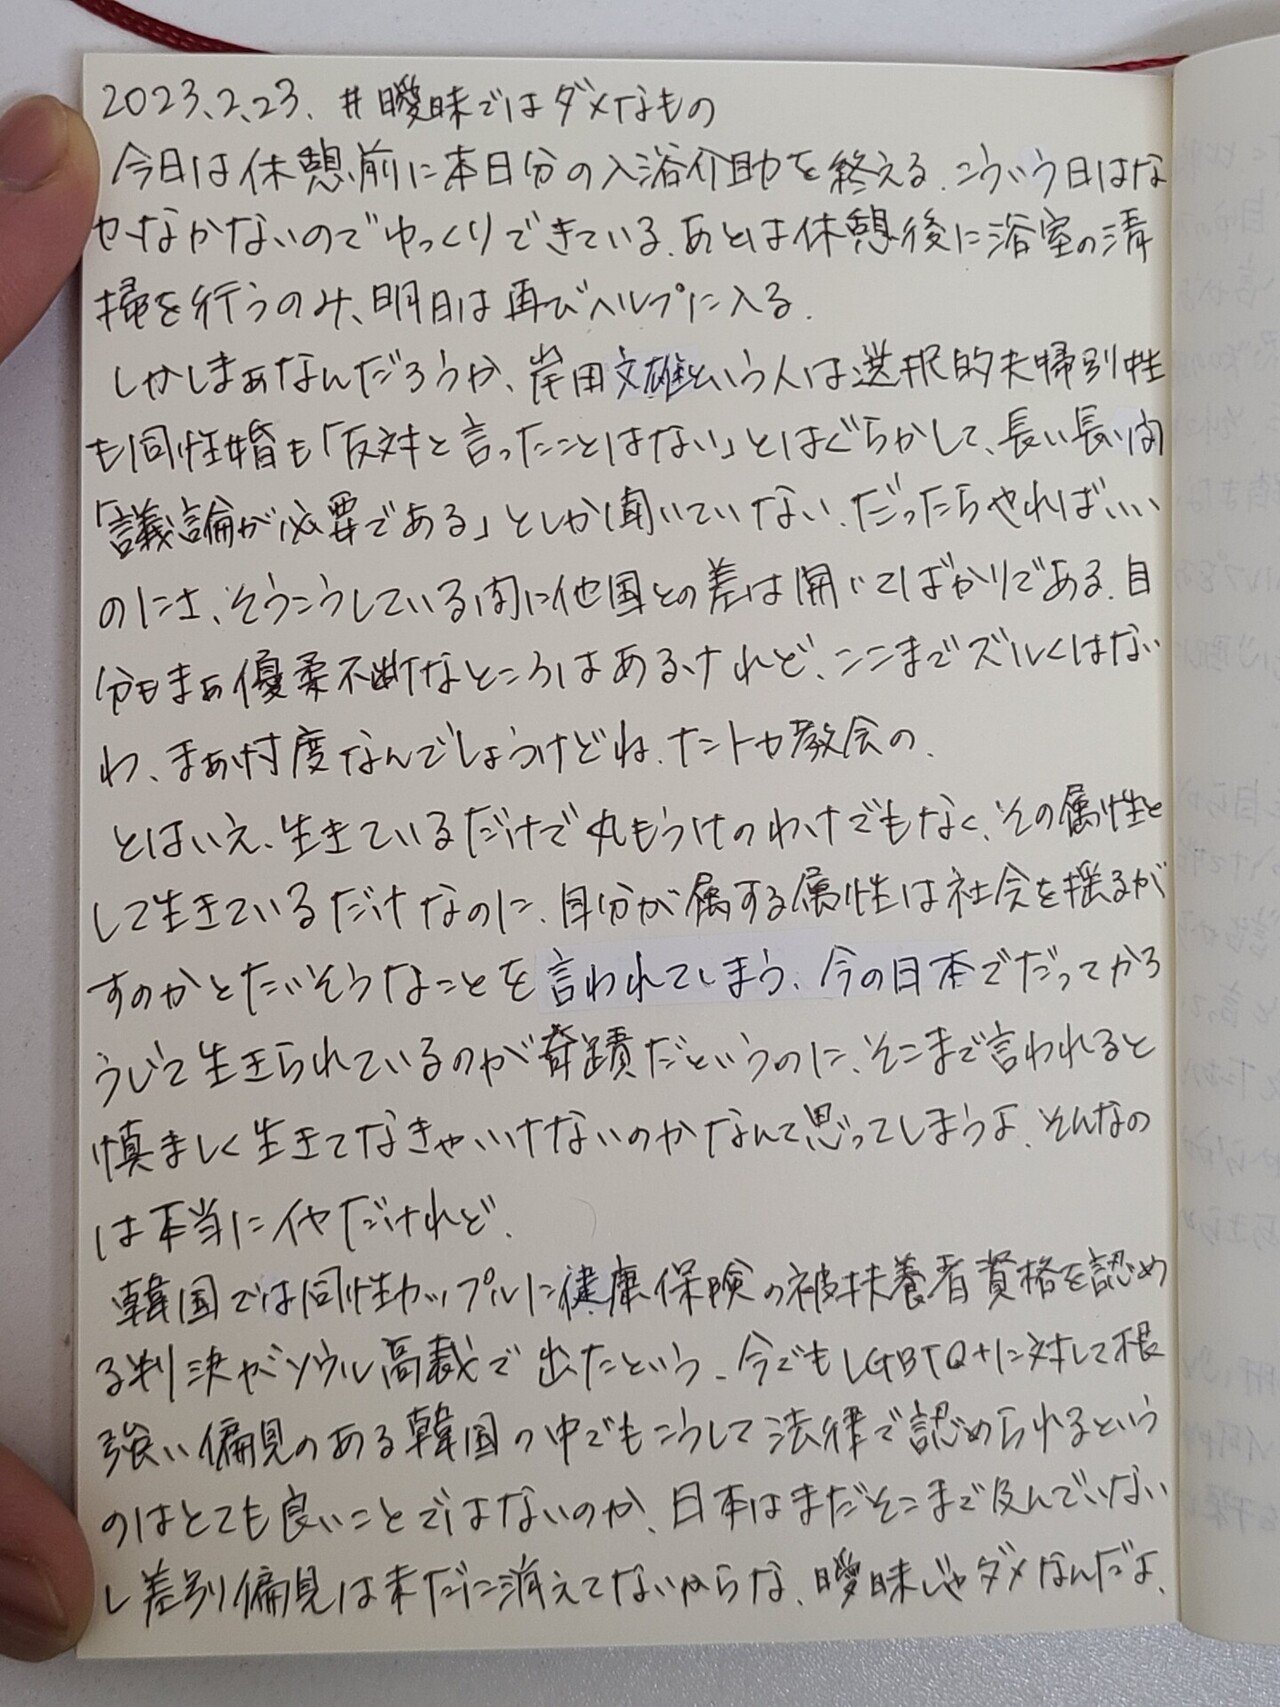 2023.2.23. #曖昧ではダメなもの
今日は休憩前に本日分の入浴介助を終える。こういう日はな
かなかないのでゆっくりできている。あとは休憩後に浴室の清
掃を行うのみ、明日は再びヘルプに入る。
しかしまぁなんだろうか、岸田文雄という人は選択的夫婦別姓
も同性婚も「反対と言ったことはない」とはぐらかして、長い長い間
「議論が必要である」としか聞いていない。だったらやればいい
のにさ、そうこうしている間に他国との差は開いてばかりである。自
分もまぁ優柔不断なところはあるけれど、ここまでズルくはない
わ、まぁ忖度なんでしょうけどね。ナントカ教会の。
とはいえ、生きているだけで丸もうけのわけでもなく、その属性と
して生きているだけなのに、自分が属する属性は社会を揺るが
すのかとたいそうなことを言われてしまう。今の日本でだってかろ
うじて生きられているのが奇蹟だというのに、そこまで言われると
慎ましく生きてなきゃいけないのかなんて思ってしまうよ。そんなの
は本当にイヤだけれど。
韓国では同性カップルに健康保険の被扶養者資格を認め
る判決がソウル高裁で出たという。今でもLGBTQ+に対して根
強い偏見のある韓国の中でもこうして法律で認められるという
のはとても良いことではないのか、日本はまだそこまで及んでいない
し差別偏見は未だに消えてないからな、曖昧じゃダメなんだよ、